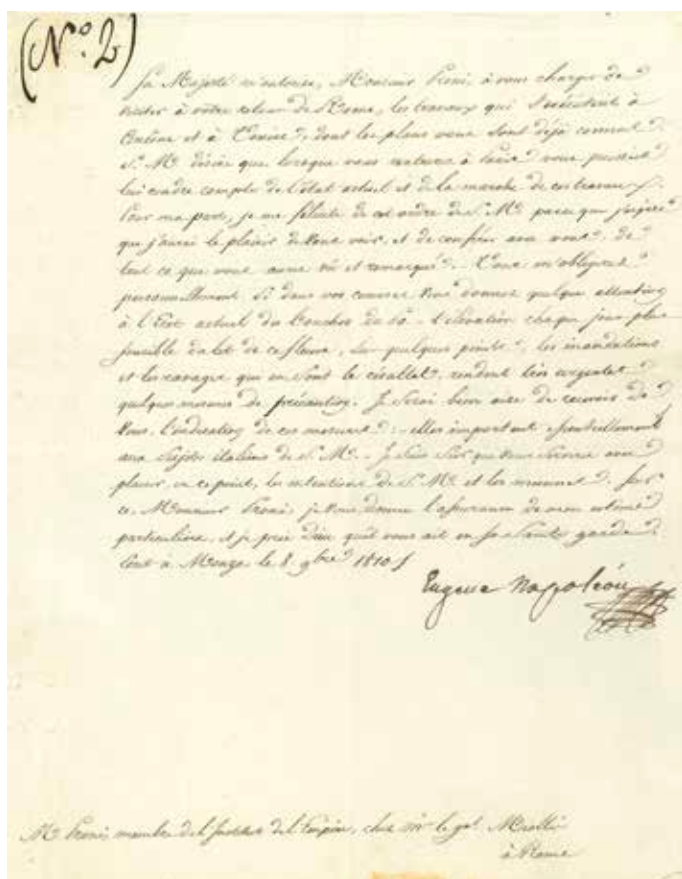 (N.º 2)
Sa Majesté m'autorise, Monsieur Proni, à vous charger de
visiter à votre retour de Rome, les travaux qui s'exécutent à
Ancône et à Venise, dont les plans vous sont déjà connus.
S. M. désire que lorsque vous rentrerez à Paris vous puissiez
lui rendre compte de l'état actuel et de la marche de ces travaux.
Pour ma part, je me félicite de cet ordre de S. M. parce que j'espère
que j'aurai le plaisir de vous voir, et de conférer avec vous, de
tout ce que vous aurez vû et remarqué. Vous m'obligerez
personnellement si dans vos courses vous donnez quelque attention
à l'Etat actuel du Bouches du Pô. L'élévation chaque jour plus
sensible du lit de ce fleuve, sur quelques points, les inondations
et les ravages qui en sont le résultat, rendent très urgentes
quelques mesures de précaution. Je serai bien aise de recevoir de
vous, l'indication de ces mesures: elles importent essentiellement
aux sujets italiens de S. M. Je suis sûr que vous servirez avec
plaisir, en ce point, les intentions de S. M. et les miennes. Sur
ce, Monsieur Proni, je vous donne l'assurance de mon estime
particulière, et je prie Dieu qu'il vous ait en sa Sainte garde.
à Monza le 8. 9bre 1810
Eugene Napoléon
Mr Proni membre de l'Institut de l'Empire, chez Mr le gal Miollis
à Rome